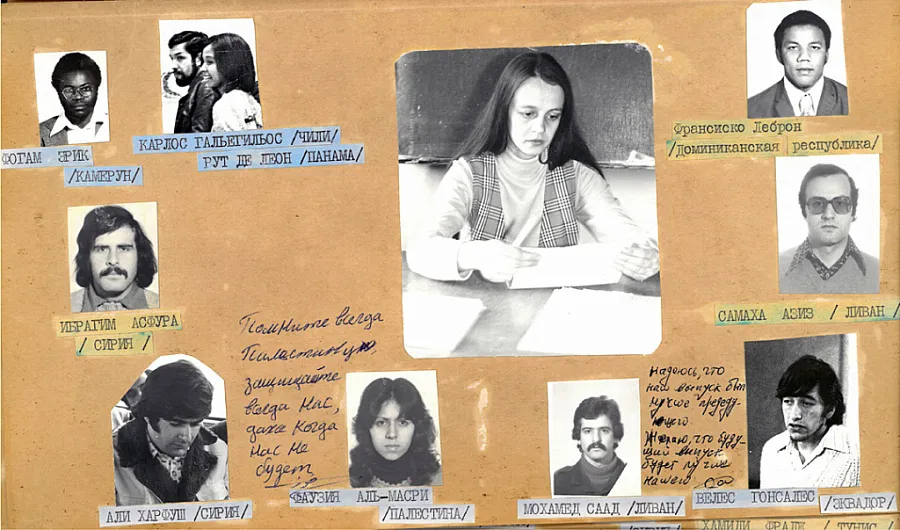 ФОГАМ ЭРИК
/КАМЕРУН/
КАРЛОС ГАЛЬЕГИЛЬОС /ЧИЛИ/
РУТ ДЕ ЛЕОН /ПАНАМА/
Франсиско Леброн
/Доминиканская республика/
ИБРАГИМ АСФУРА
/ СИРИЯ /
САМАХА АЗИЗ / ЛИВАН /
Помните всегда
защищайте
всегда нас,
даже когда
нас не
будет
Надеюсь, что
наш выпуск был
лучше преды-
дущего.
Желаю, что буду-
щий выпуск
будет лучше
нашего
АЛИ ХАРФУШ /СИРИЯ/
ФАУЗИЯ АЛЬ-МАСРИ
/ПАЛЕСТИНА/
МОХАМЕД СААД /ЛИВАН/
ВЕЛЕС ГОНСАЛЕС
/ЭКВАДОР/
ХАМИДИ
/ ТУНИС /